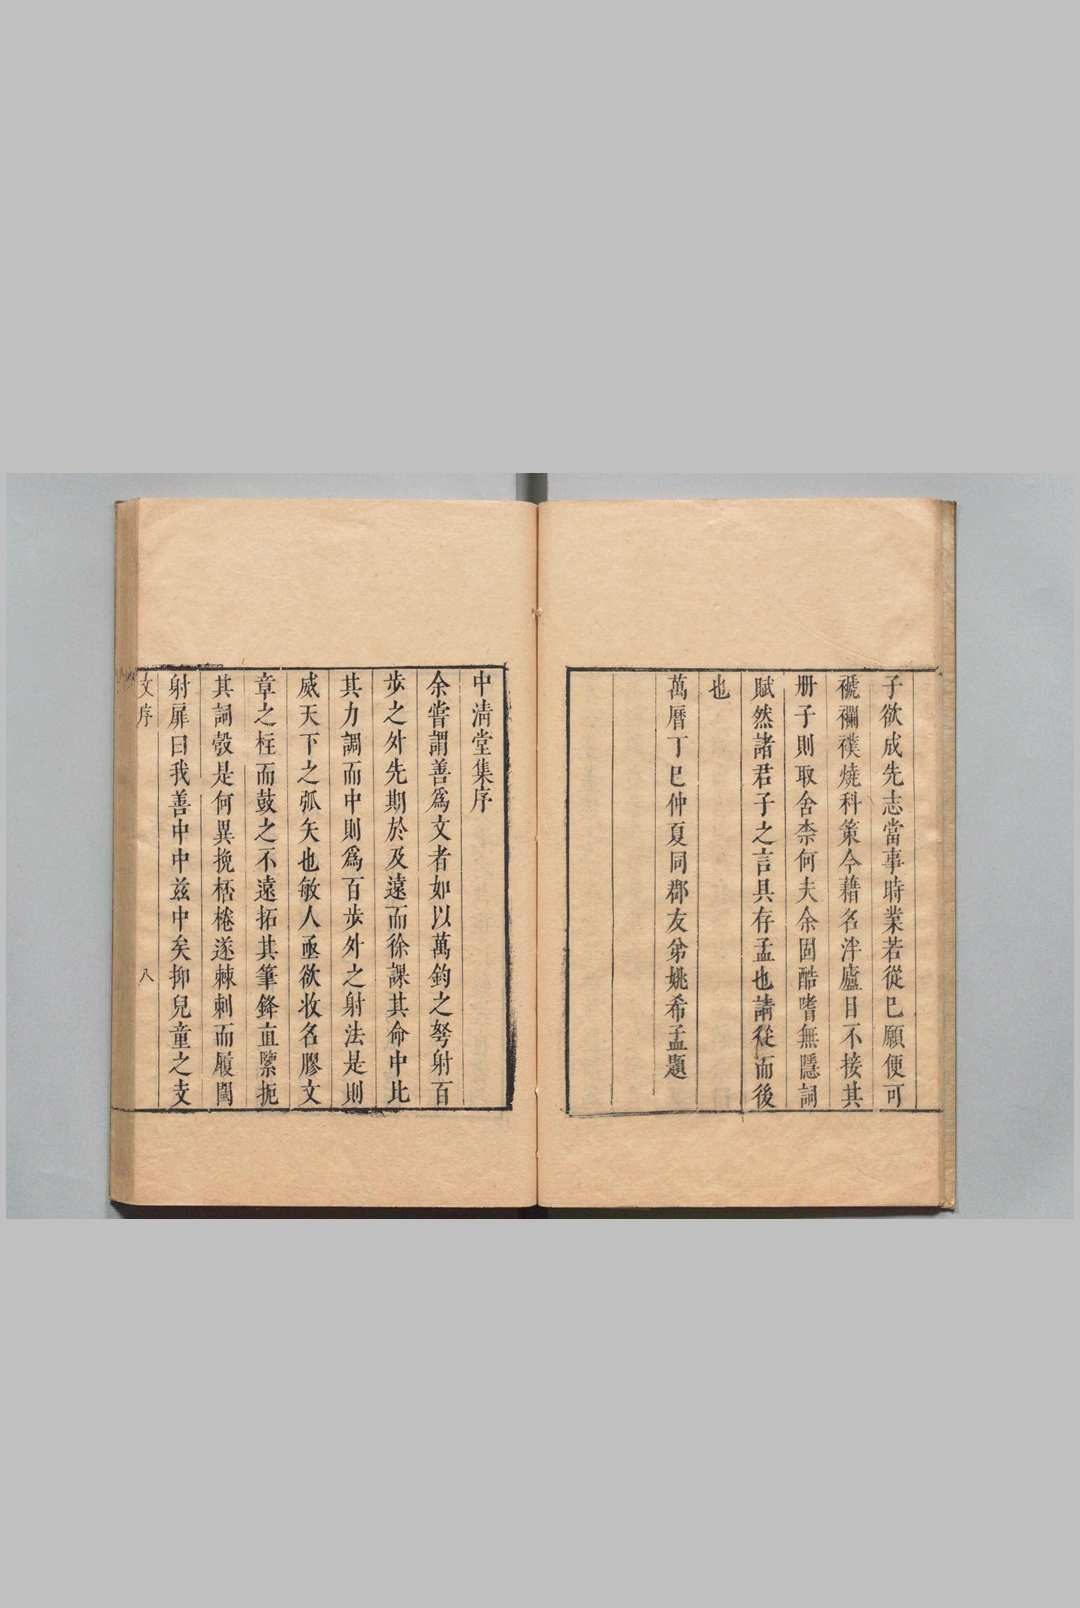 子欲成先志當事時業若從巳願便可
褫襴襆燒科策今藉名泮廬目不接其
册子則取舍柰何夫余固酷嗜無隱詞
賦然諸君子之言具存孟也請從而後
也
萬曆丁巳仲夏同郡友弟姚希孟題
中清堂集序
余嘗謂善爲文者如以萬鈞之弩射百
步之外先期於及遠而徐課其命中比
其力調而中則爲百步外之射法是則
威天下之弧矢也敏人亟欲收名膠文
章之柱而鼓之不遠拓其筆鋒直檃扼
其詞彀是何異挽桮棬遂棘刺而履閫
射扉曰我善中中兹中矣抑兒童之支
文序
八